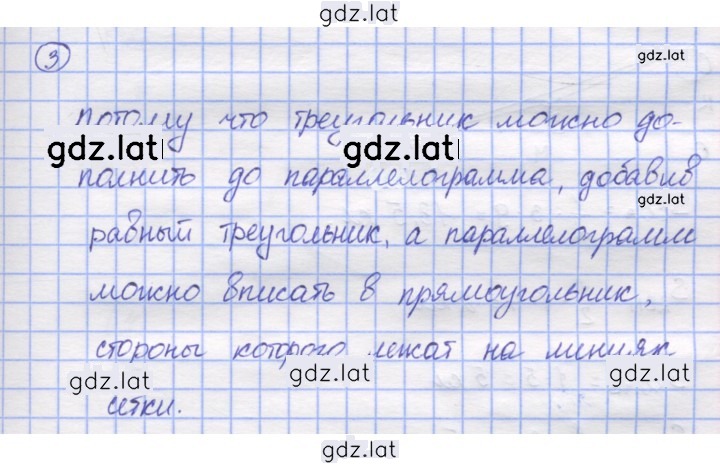 gdz.lat
3
gdz.lat
Потому что треугольник можно до-
gdz.lat gdz.lat
полнить до параллелограмма, добавив
gdz.lat
равный треугольник, а параллелограмм
можно вписать в прямоугольник,
стороны которого лежат на линиях
gdz.lat gdz.lat gdz.lat
сетки.
gdz.lat